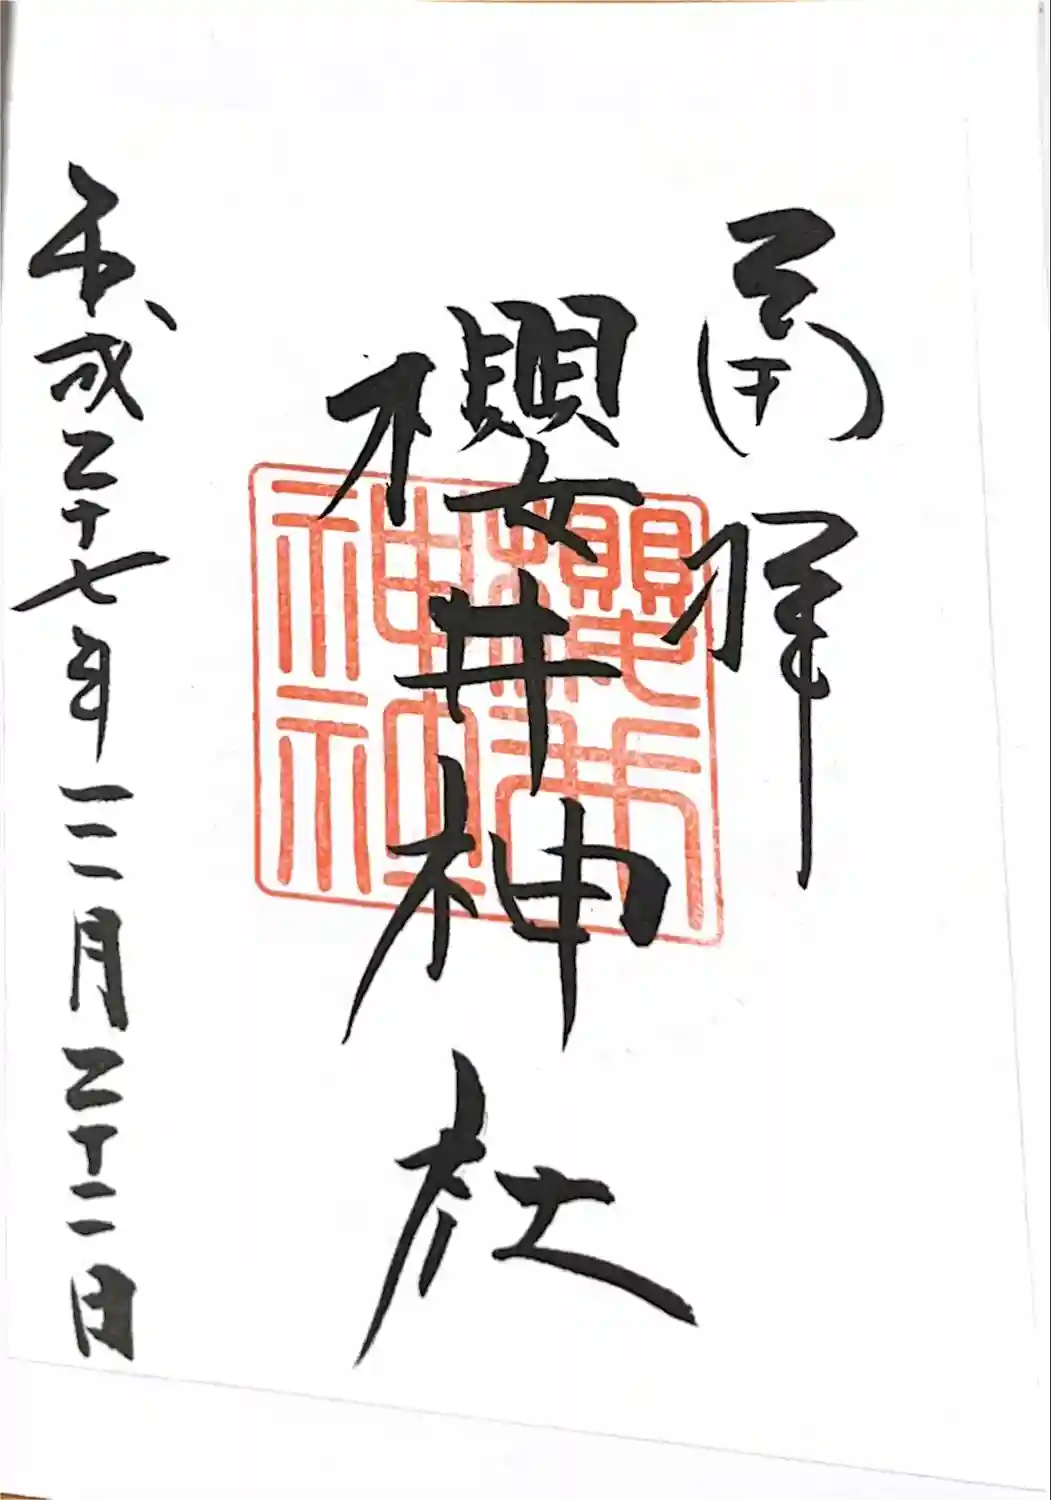 奉拝
櫻井神社
平成二十七年十二月二十二日
櫻井神社